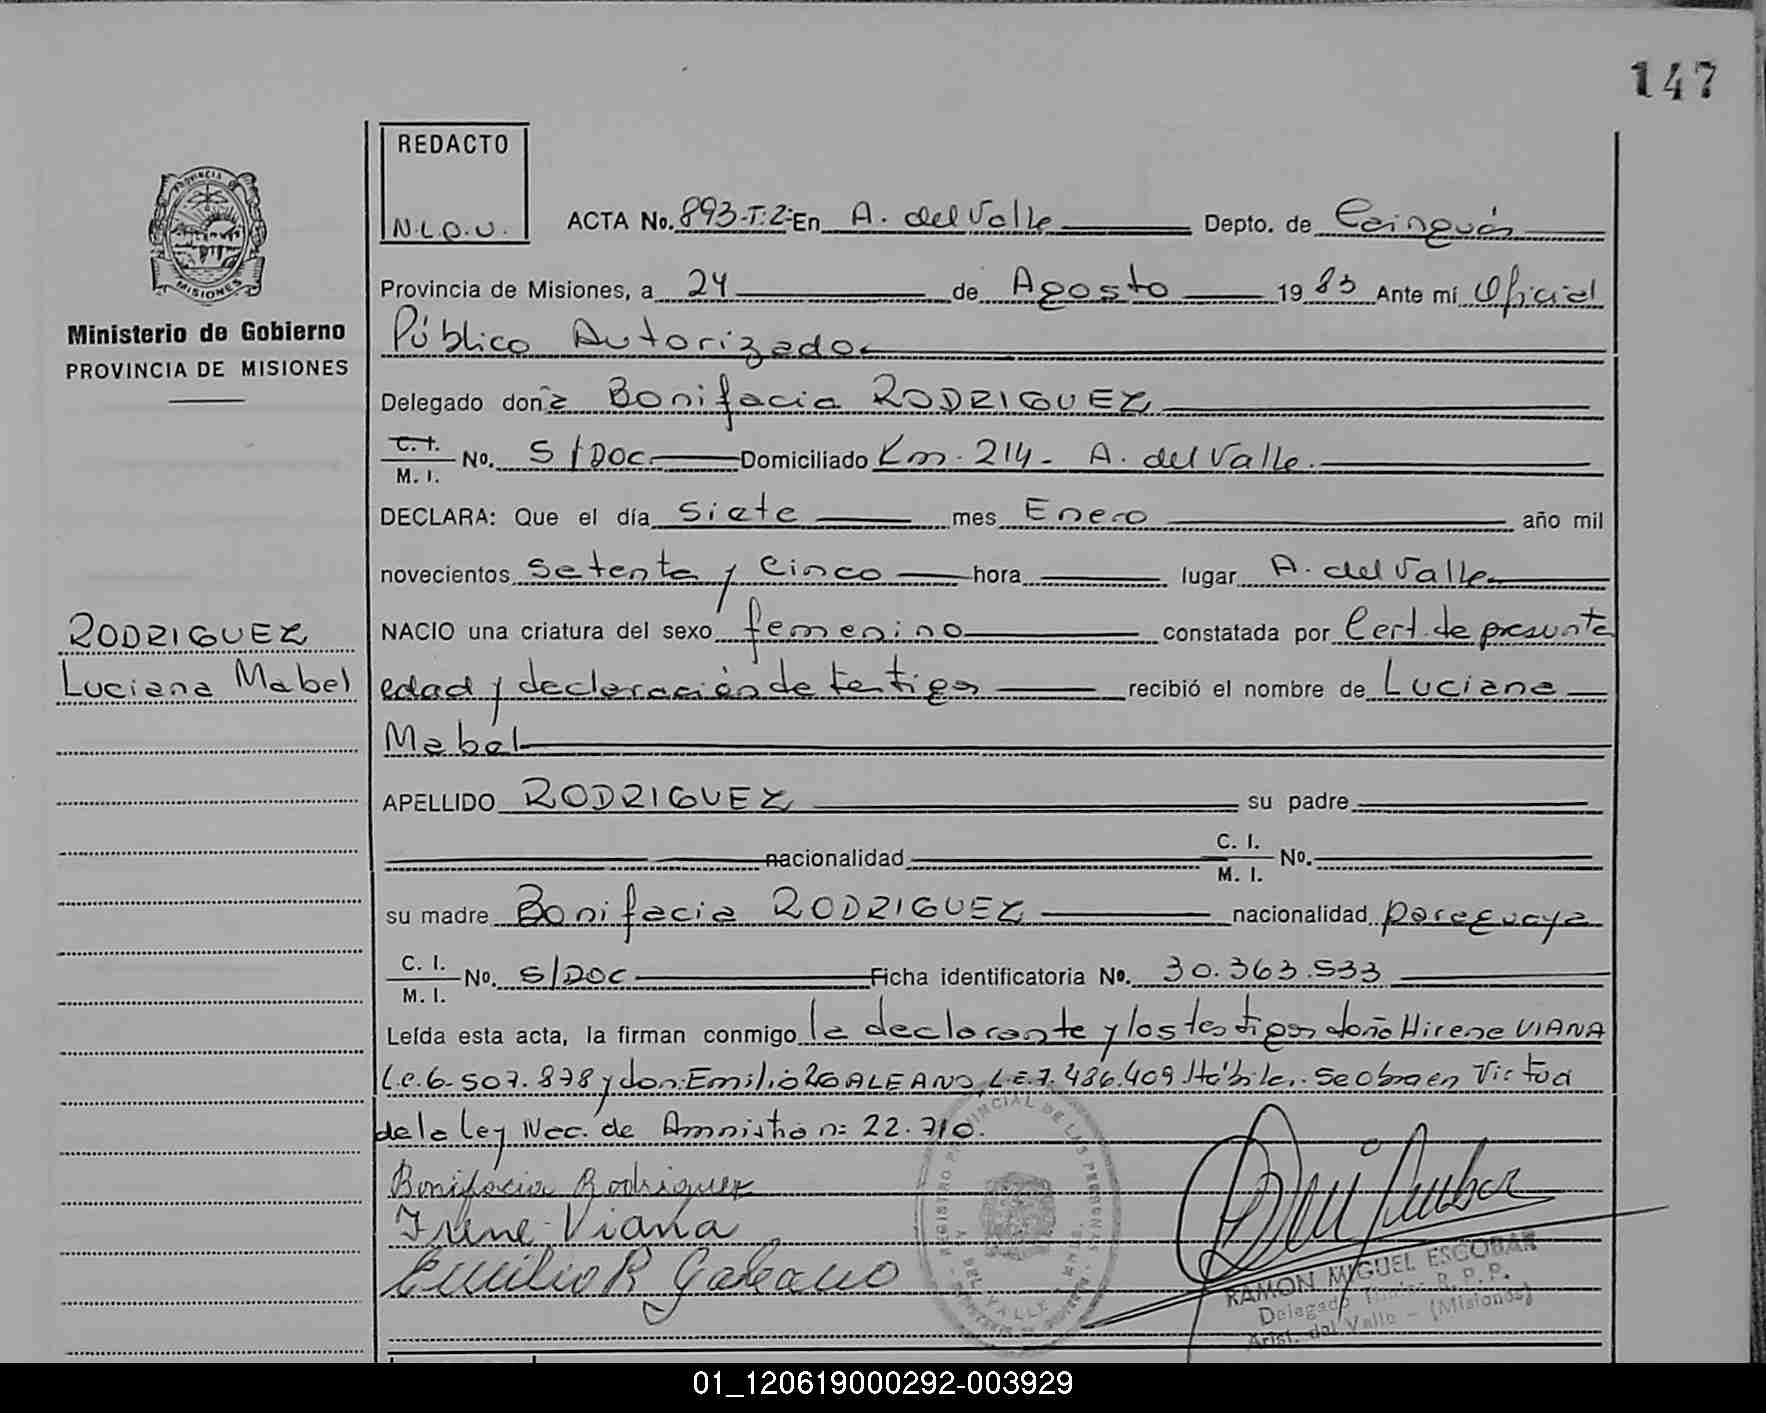 147
REDACTO
N.L.O.U.
PROVINCIA
MISIONES
Ministerio de Gobierno
PROVINCIA DE MISIONES
RODRIGUEZ
Luciana Mabel
ACTA No. 893-T:2- En A. del Valle Depto. de Cainguás
Provincia de Misiones, a 24 de Agosto 19 83 Ante mí Oficial
Público Autorizado
Delegado doña Bonifacia RODRIGUEZ
C. I. M. I. No. S/DOC. Domiciliado Km. 214 - A. del Valle.
DECLARA: Que el día Siete mes Enero año mil
novecientos Setenta y Cinco hora lugar A. del Valle
NACIO una criatura del sexo femenino constatada por Cert. de presunta
edad y declaración de testigos recibió el nombre de Luciana
Mabel
APELLIDO RODRIGUEZ su padre
nacionalidad C. I. M. I. No.
su madre Bonifacia RODRIGUEZ nacionalidad paraguaya
C. I. M. I. No. S/DOC Ficha identificatoria No. 30.363.533
Leída esta acta, la firman conmigo la declarante y los testigos doña Hirene VIANA
L.C. 6.507.878 y don: Emilio R GALEANO, L.E. 7.486.409 Hábiles. Se obra en Virtud
de la Ley Nac. de Amnistía nº 22.710.
Bonifacia Rodriguez
Irene Viana
Emilio R Galeano
REGISTRO PROVINCIAL DE LAS PERSONAS
DEL VALLE
RAMON MIGUEL ESCOBAR
Delegado Titular R. P. P.
Arist. del Valle - (Misiones)
01_120619000292-003929